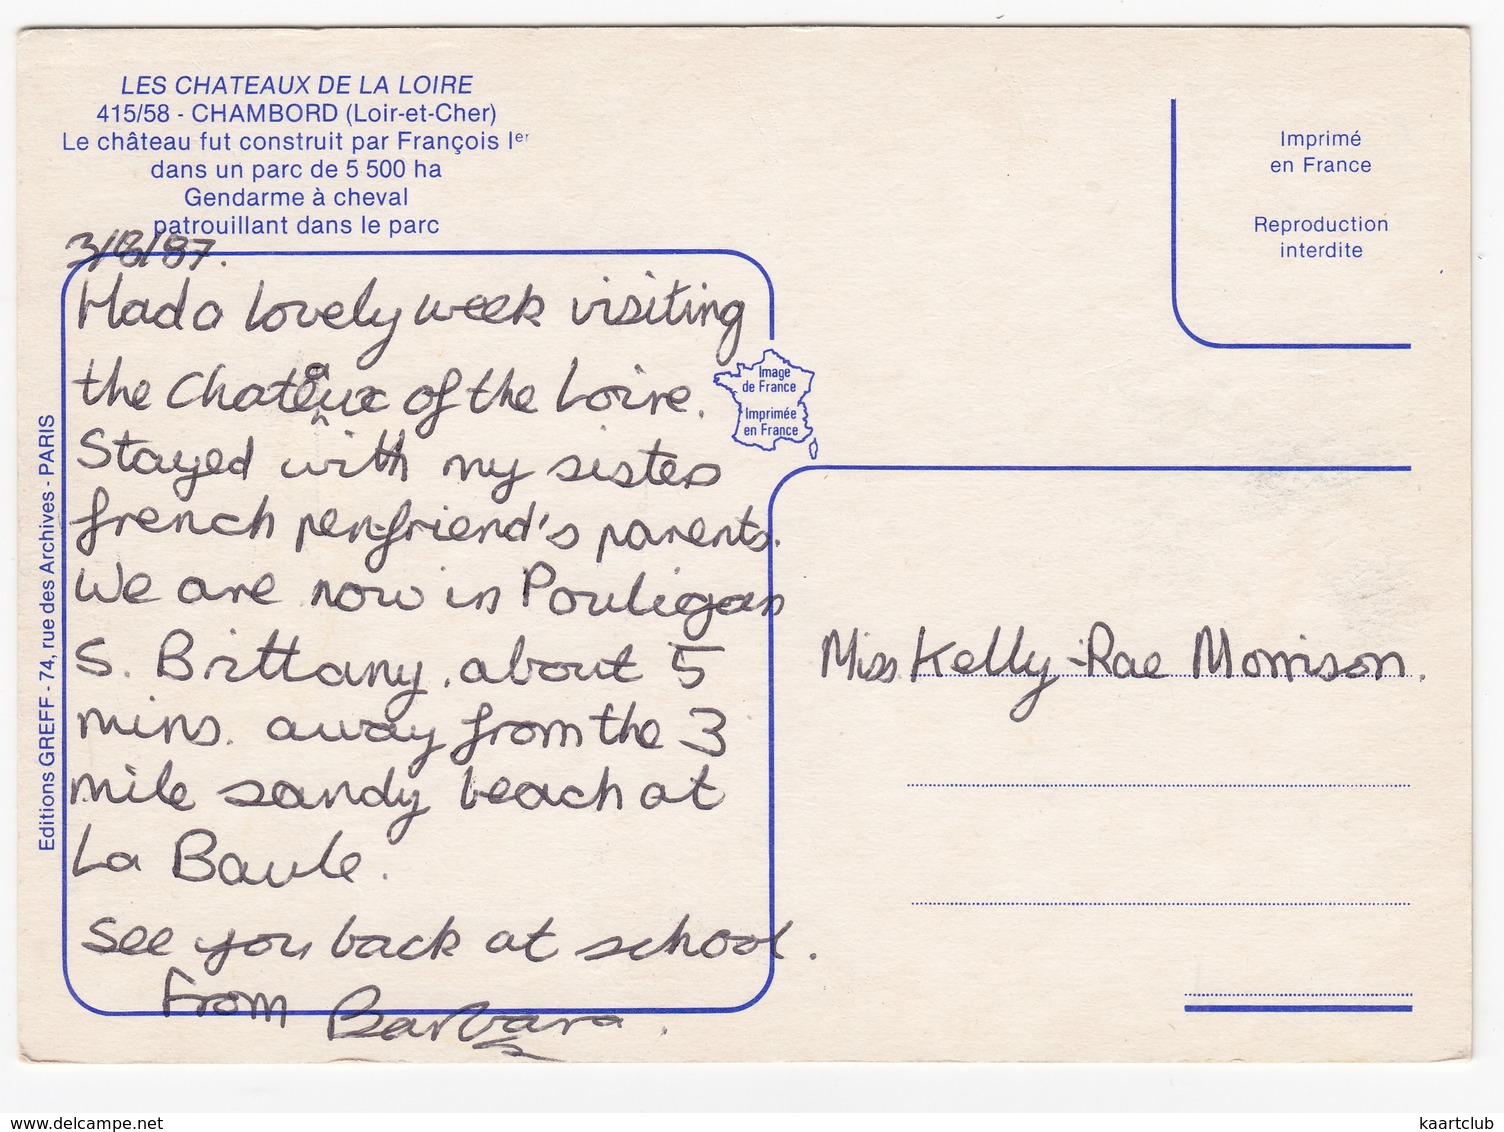 LES CHATEAUX DE LA LOIRE
415/58 - CHAMBORD (Loir-et-Cher)
Le château fut construit par François Ier
dans un parc de 5 500 ha
Gendarme à cheval
patrouillant dans le parc
3/8/87.
Had a lovely week visiting
the Chateaux of the Loire.
Stayed with my sisters
french pen-friend's parents.
We are now in Pouligan
S. Brittany, about 5
mins. away from the 3
mile sandy beach at
La Baule.
See you back at school.
From Barbara.
Editions GREFF - 74, rue des Archives - PARIS
Image
de France
Imprimée
en France
Imprimé
en France
Reproduction
interdite
Miss Kelly-Rae Morrison.
www.delcampe.net
kaartclub